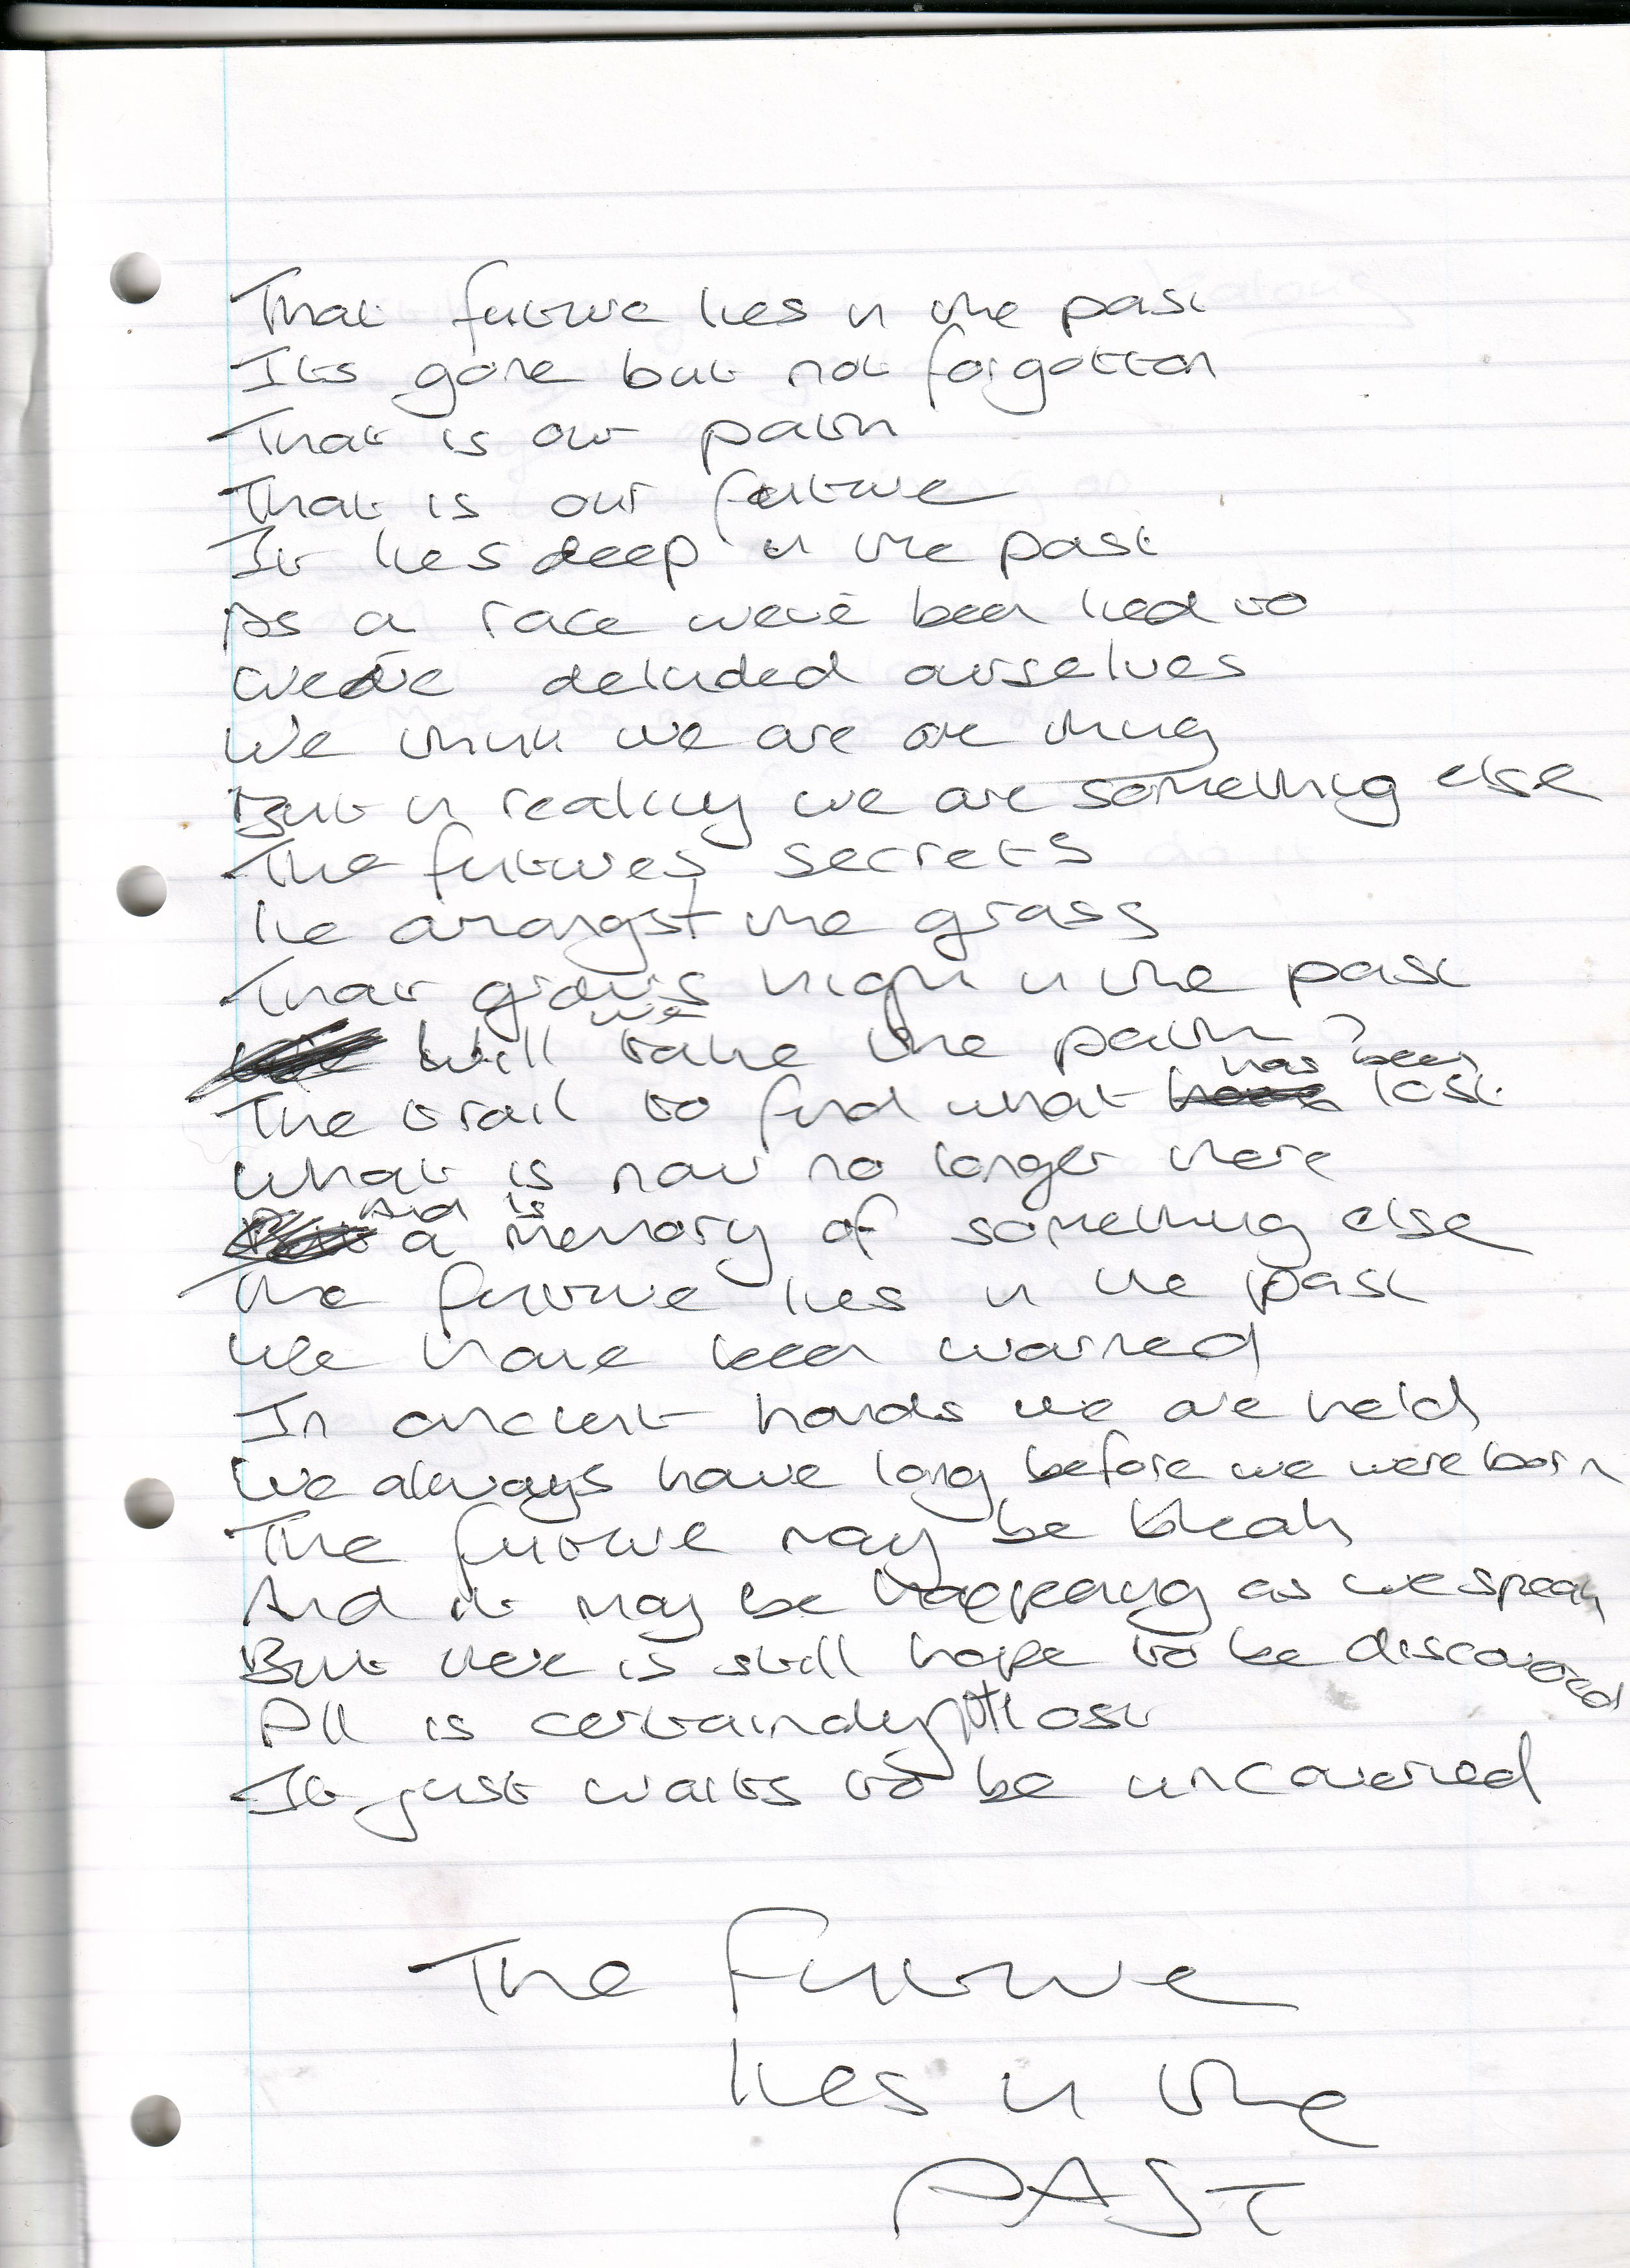 That future lies in the past
Its gone but not forgotten
That is our path
That is our future
It lies deep in the past
As a race we've been lied to
We've deluded ourselves
We think we are one thing
But in reality we are something else
The futures secrets
lie amongst the grass
That grows high in the past
Will we take the path?
The trail to find what has been lost
What is now no longer there
And is a memory of something else
The future lies in the past
We have been warned
In ancient hands we are held
We always have long before we were born
The future may be bleak
And it may be happening as we speak
But there is still hope to be discovered
All is certaindly lost
It just waits to be uncovered
The future
lies in the
PAST